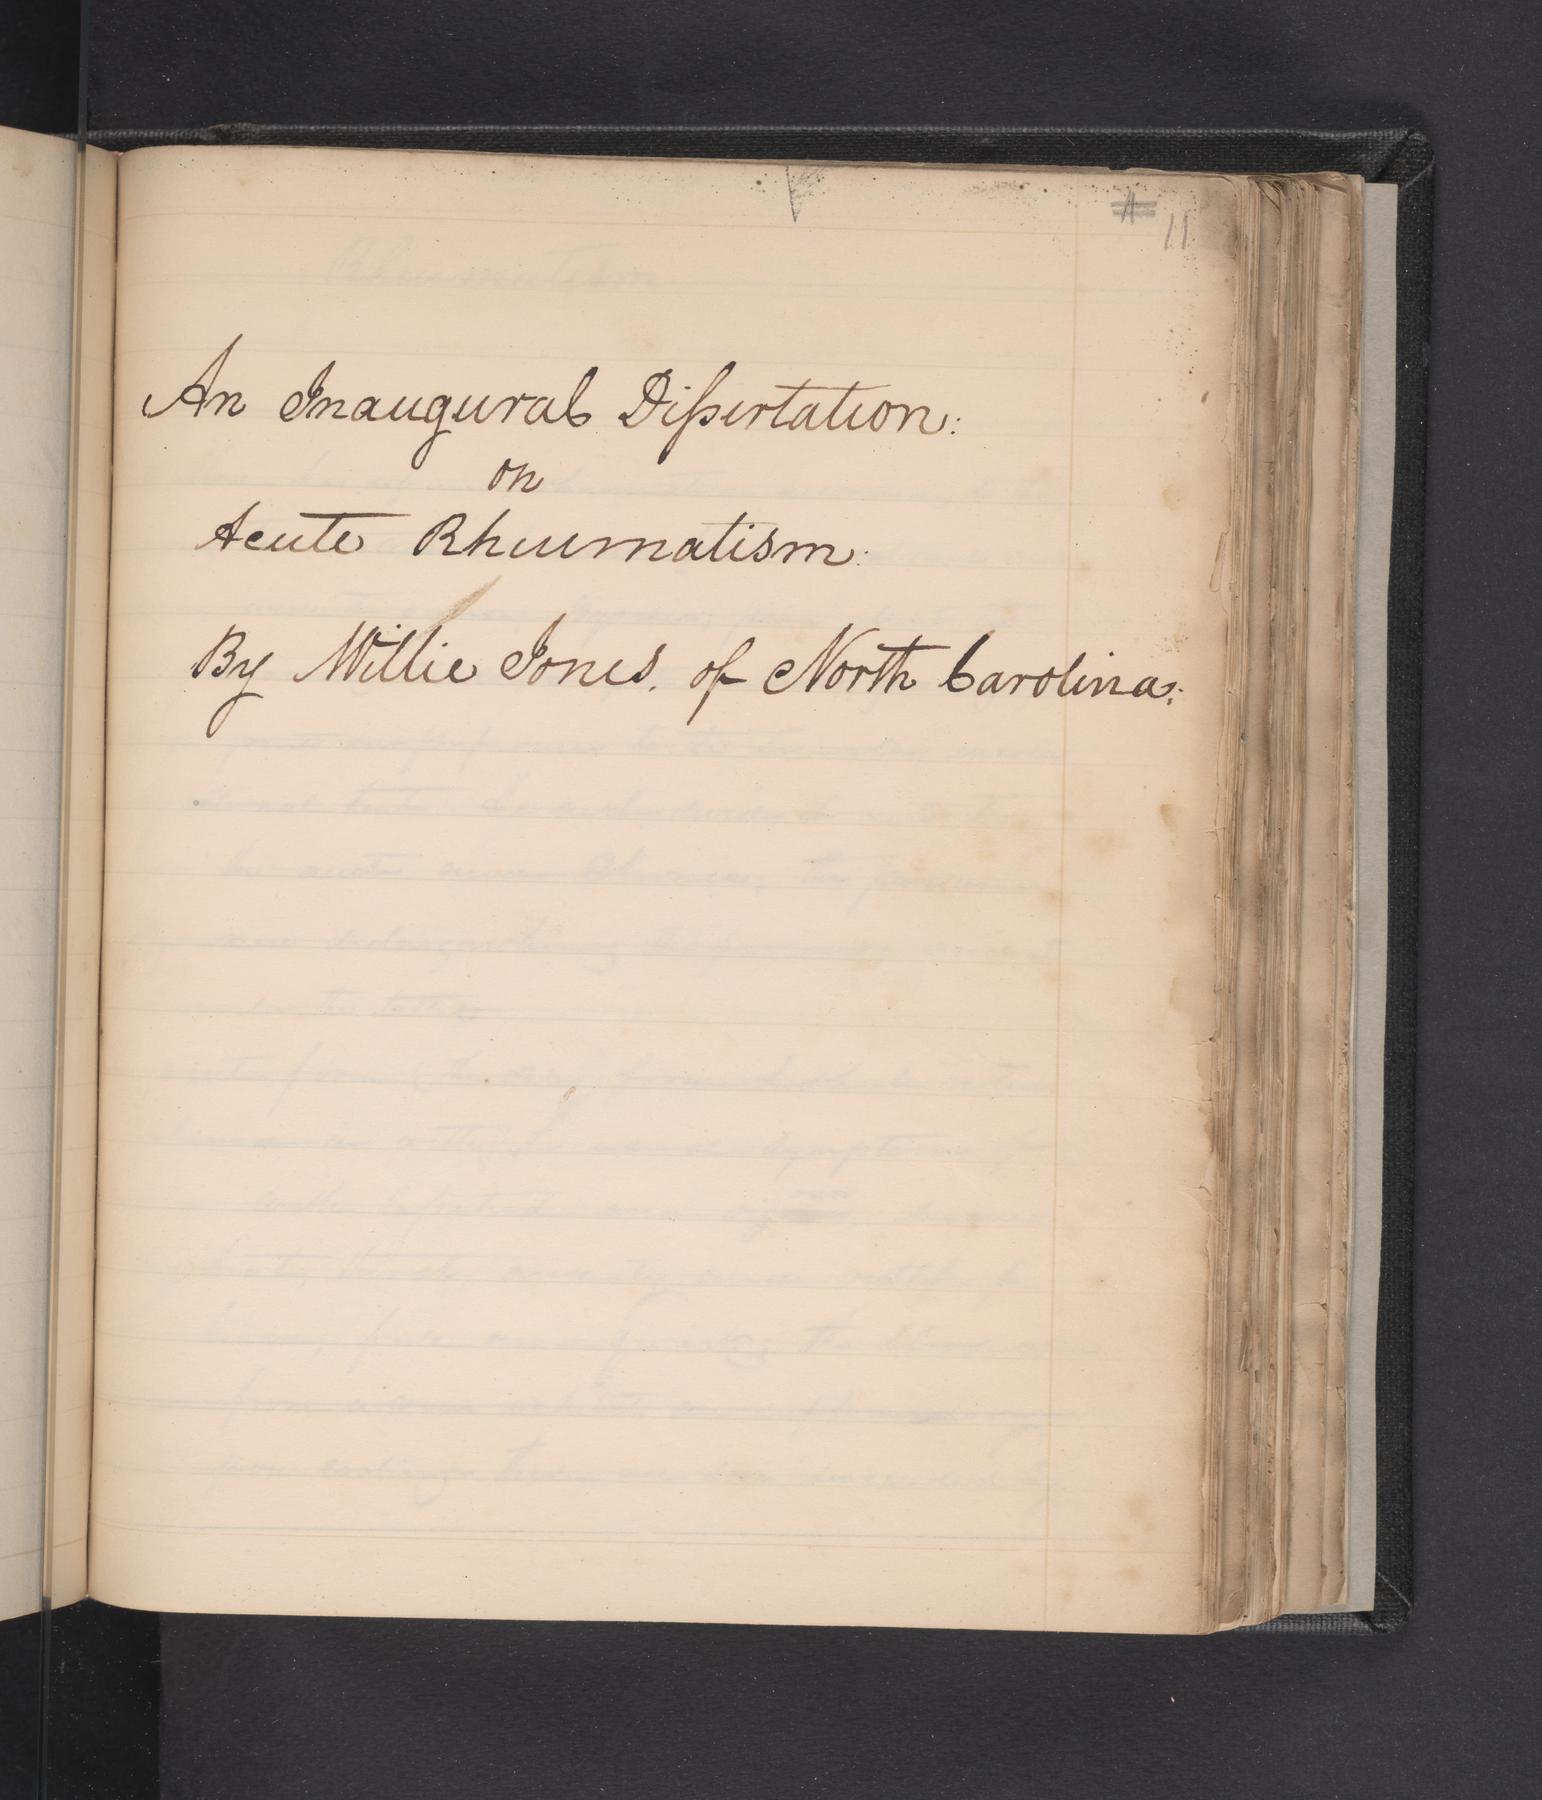 11
An Inaugural Difsertation:
on
Acute Rheumatism:
By Willie Jones. of North Carolina: